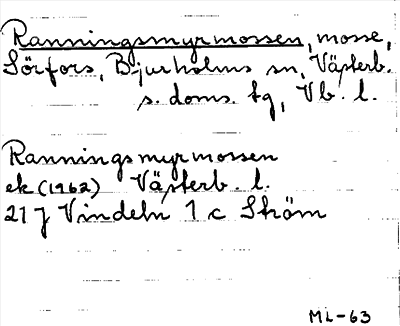 Ranningsmyrmossen, mosse,
Sörfors, Bjurholms sn, Västerb.
s. doms. tg, Vb. l.
Ranningsmyrmossen
ek (1962) Västerb. l.
21 J Vindeln 1 c Ström
ML-63